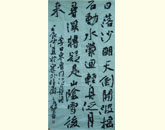 日落沙明天倒開波搖
石動水縈迴輕舟泛月
尋溪轉疑是山陰雪後
來